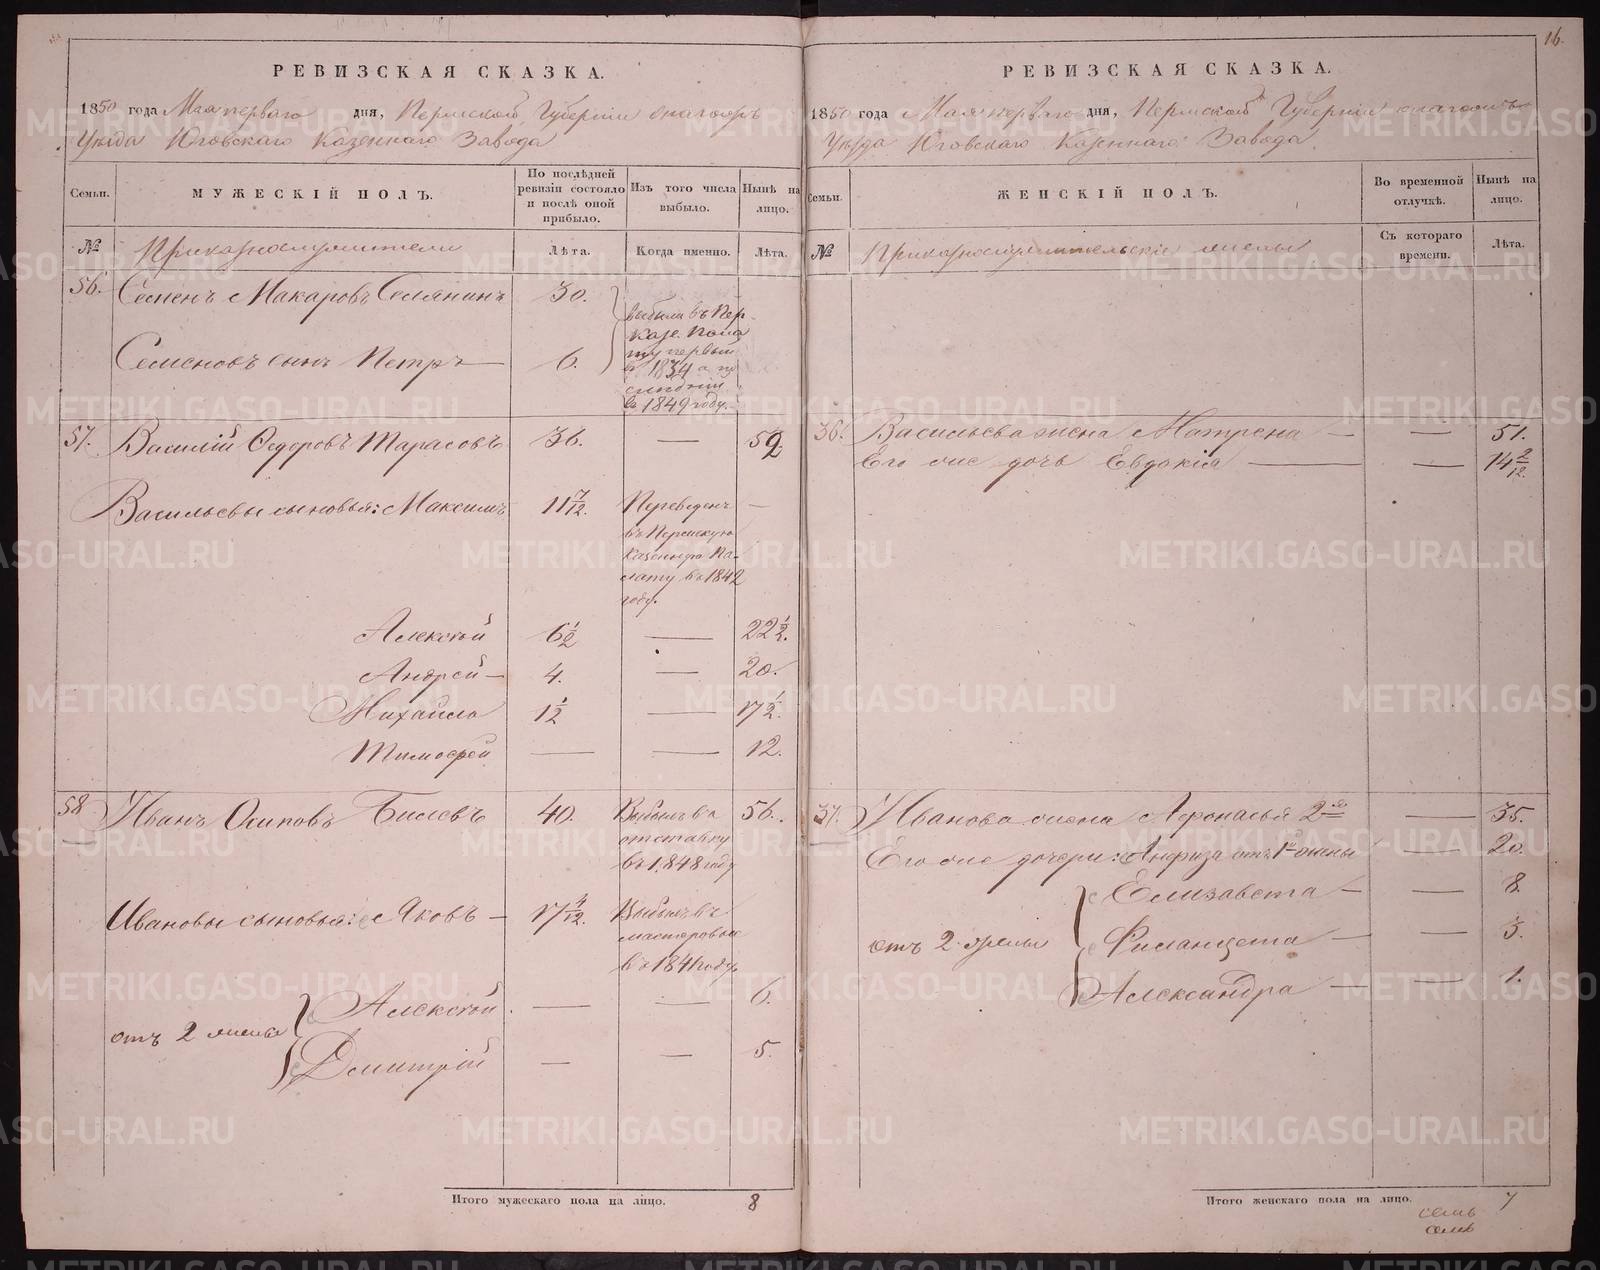 РЕВИЗСКАЯ СКАЗКА.
1850 года Мая перваго дня, Пермской Губерніи онагожъ
Уѣзда Юговскаго Казеннаго Завода
Семьи.
МУЖЕСКІЙ ПОЛЪ.
По послѣдней ревизіи состояло и послѣ оной прибыло.
Изъ того числа выбыло.
Нынѣ на лицо.
№
Приказнослужители
Лѣта.
Когда именно.
Лѣта.
56. Семенъ Макаровъ Селянинъ 30.
Семеновъ сынъ Петръ 6.
выбыли въ Пер
Казе. Пала
ту первый
въ 1834 а по
слѣдній
въ 1849 году.
57. Василій Федоровъ Тарасовъ 36. — 52
Васильевы сыновья: Максимъ 11 7/12. Переведенъ —
въ Пермскую
Казенную Па-
лату въ 1842
году.
Алексѣй 6 1/2 — 22 1/2.
Андрей — 4. — 20.
Михайло 1 1/2 — 17 1/2.
Тимофей — — 12.
58 Иванъ Осиповъ Билевъ 40. Выбылъ въ 56.
отставку
въ 1848 году
Ивановы сыновья: Яковъ — 17 4/12. Выбылъ въ
мастеровые
въ 1841 году
отъ 2 жены
Алексѣй — — 6.
Дмитрій — — 5.
Итого мужескаго пола на лицо. 8
16.
РЕВИЗСКАЯ СКАЗКА.
1850 года Мая перваго дня, Пермской Губерніи онагожъ
Уѣзда Юговскаго Казеннаго Завода.
Семьи.
ЖЕНСКІЙ ПОЛЪ.
Во временной отлучкѣ.
Нынѣ на лицо.
№
Приказнослужительскіе жены
Съ котораго времени.
Лѣта.
36. Васильева жена Матрена — — 51.
Его же дочь Евдокія — — 14 2/12.
37. Иванова жена Афонасья 2я — 35.
Его же дочери: Анфиза отъ 1й жены — 20.
отъ 2 жены
Елизавета — — 8.
Филанцета — — 3.
Александра — — 1.
Итого женскаго пола на лицо. 7
семь
семь
METRIKI.GASO-URAL.RU